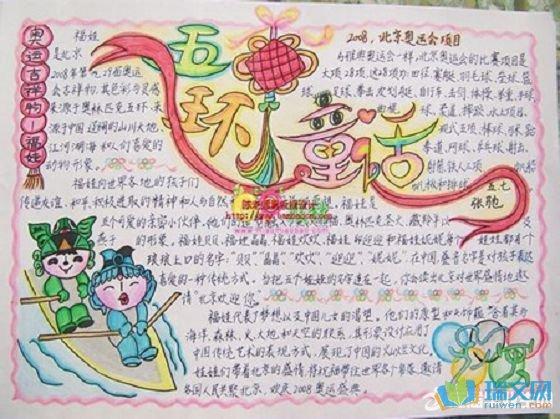 奥运吉祥物—福娃
五环童话
福娃
是北京
2008年第29届奥运
会吉祥物,其色彩与灵感
来源于奥林匹克五环、来
源于中国辽阔的山川大地、
江河湖海和人们喜爱的
动物形象。
福娃向世界各地的孩子们
传递友谊、和平、积极进取的精神和人与自然
福娃是
五个可爱的亲密小伙伴,他们的
的形象。福娃贝贝、福娃晶晶、福娃欢欢、福娃迎迎和福娃妮妮
娃娃都有个
琅琅上口的名字:“贝贝”“晶晶”“欢欢”“迎迎”“妮妮”,在中国,叠音名字是对孩子表达
喜爱的一种传统方式,当把五个娃娃的名字连在一起,你会读出北京对世界盛情地邀
请“北京欢迎您”。
福娃代表了梦想以及中国人民的渴望。他们的原型和头饰蕴含着与
海洋、森林、火、大地和天空的联系,其形象设计应用了
中国传统艺术的表现方式,展现了中国的灿烂文化。
娃娃们带着北京的盛情,将祝福带往世界各个角落,邀请
各国人民共聚北京,欢庆2008奥运盛典。
2008,北京奥运会项目
与雅典奥运会一样,北京奥运会的比赛项目是
大项28项,这28项为:田径、赛艇、羽毛球、垒球、篮
球、足球、拳击、皮划艇、自行车、击剑、体操、举重、手球、
曲棍
球、柔道、摔跤、水上项目、
现代五项、棒球、马术、跆
拳道、网球、乒乓球、射击、
射箭、铁人三项、
帆船
帆板和排球。
五七
张驰
瑞文网
ruiwen.com